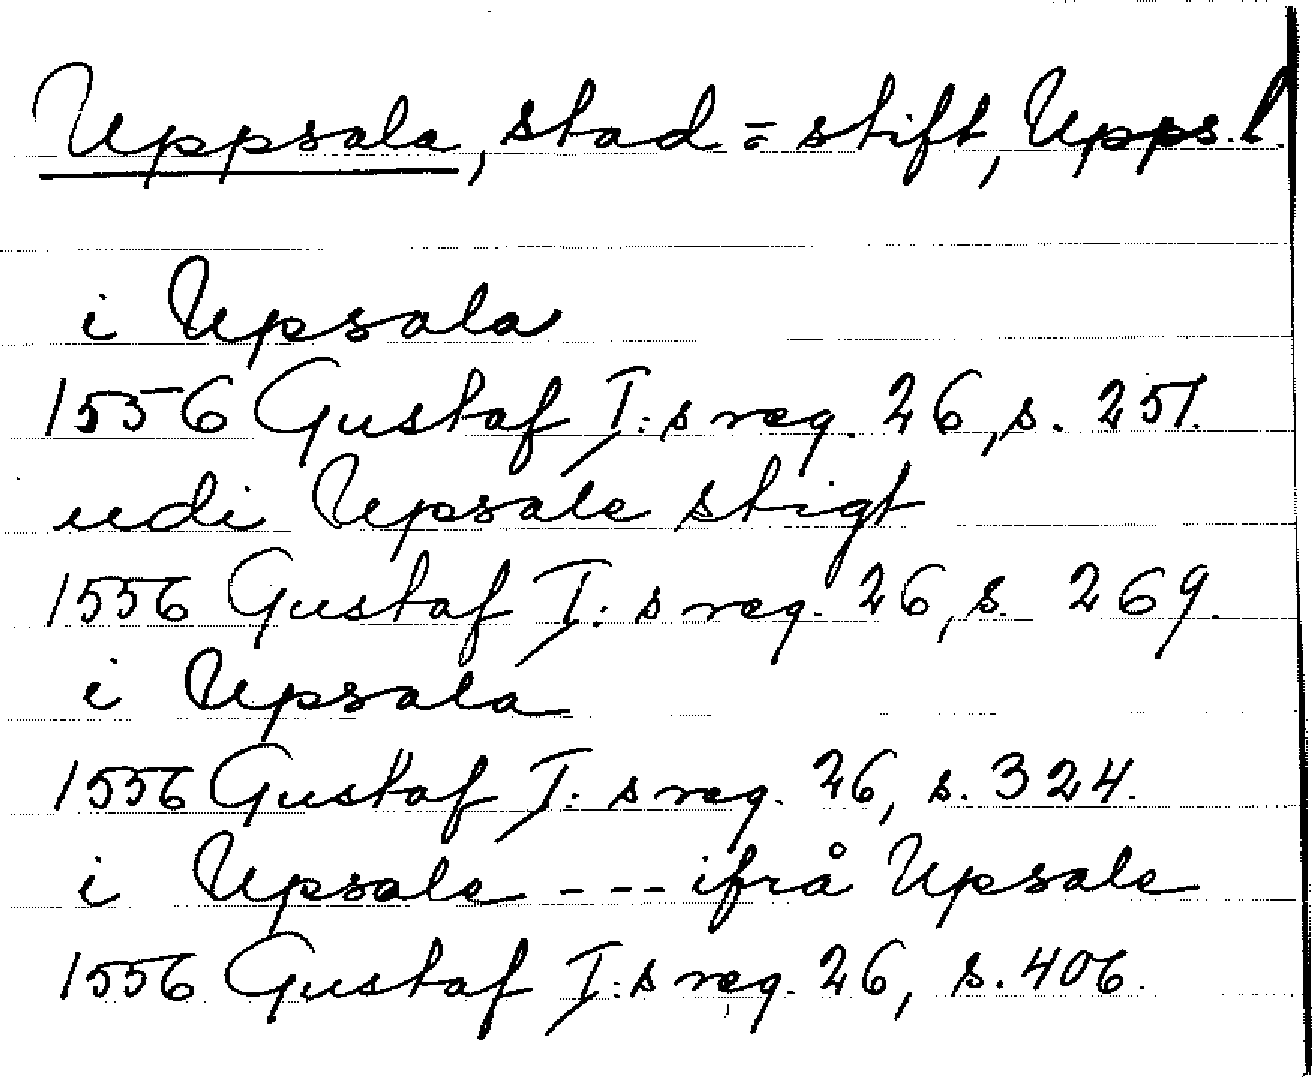 Uppsala, stad = stift, Upps. l.
i Upsala
1556 Gustaf I:s reg. 26, s. 251.
udi Upsale stigt
1556 Gustaf I:s reg. 26, s. 269.
i Upsala
1556 Gustaf I:s reg. 26, s. 324.
i Upsale --- ifrå Upsale
1556 Gustaf I:s reg. 26, s. 406.